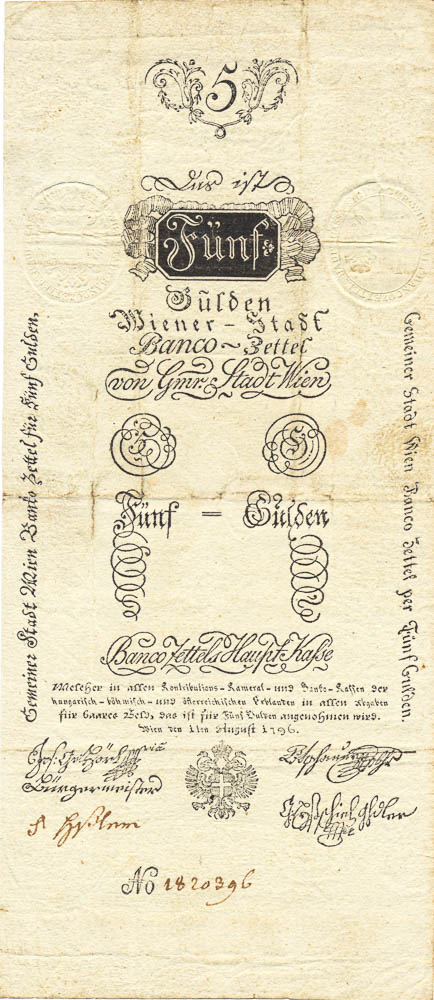 5
Das ist
Fünf
Gulden
Wiener - Stadt
Banco ~ Zettel
von Gmr. Stadt Wien
5 5
Fünf = Gulden
Banco Zettels Haupt Kasse
Welcher in allen Kontributions - Kameral - und Banko - Kassen der
hungarisch - böhmisch - und österreichischen Erblanden in allen Abgaben
für baares Geld, das ist für Fünf Gulden angenohmen wird.
Wien den 1ten August 1796.
Bürgermeister
No 1820396
Gemeiner Stadt Wien Banko Zettel für Fünf Gulden,
Gemeiner Stadt Wien Banco Zettel per Fünf Gulden.